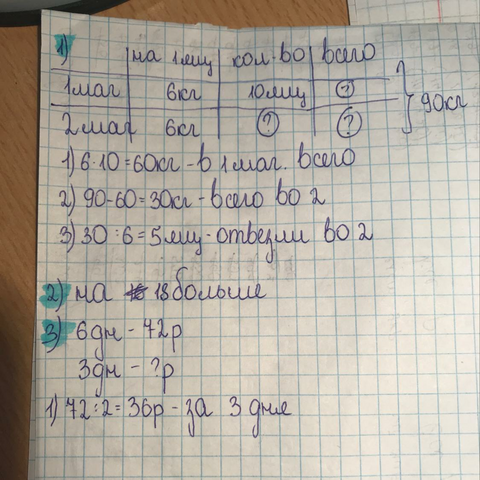 1) на 1 ящ кол-во всего
1маг 6кг 10ящ ?
2маг 6кг ? ? } 90кг
1) 6·10=60кг-в 1 маг. всего
2) 90-60=30кг-всего во 2
3) 30:6=5ящ-отвезли во 2
2) на 18 больше
3) 6дн - 72р
3дн - ?р
1) 72:2=36р-за 3 дня